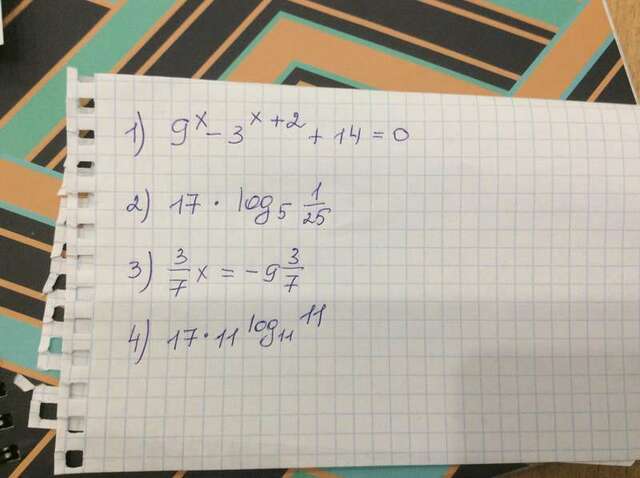 1) 9^x - 3^{x+2} + 14 = 0
2) 17 · log_5 1/25
3) 3/7 x = -9 3/7
4) 17 · 11^{log_{11} 11}